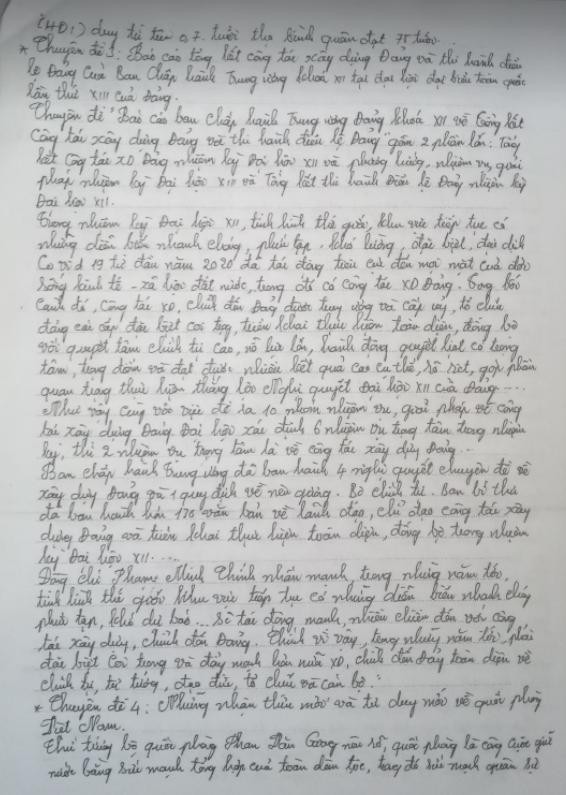 (HDI) duy trì trên 0,7. tuổi thọ bình quân đạt 75 tuổi...
* Chuyên đề 3: Báo cáo tổng kết công tác xây dựng Đảng và thi hành điều
lệ Đảng của Ban Chấp hành Trung ương khoá XII tại đại hội đại biểu toàn quốc
lần thứ XIII của Đảng.
Chuyên đề "Báo cáo ban chấp hành Trung ương Đảng khoá XII về Tổng kết
công tác xây dựng Đảng và thi hành điều lệ Đảng" gồm 2 phần lớn: Tổng
kết công tác XD Đảng nhiệm kỳ Đại hội XII và phương hướng, nhiệm vụ, giải
pháp nhiệm kỳ Đại hội XIII và Tổng kết thi hành Điều lệ Đảng nhiệm kỳ
Đại hội XII.
Trong nhiệm kỳ Đại hội XII, tình hình thế giới, khu vực tiếp tục có
những diễn biến nhanh chóng, phức tạp, khó lường, đặc biệt, đại dịch
Covid 19 từ đầu năm 2020 đã tác động tiêu cực đến mọi mặt của đời
sống kinh tế - xã hội đất nước, trong đó có công tác XD Đảng. Trong bối
cảnh đó, công tác XD, chỉnh đốn Đảng được trung ương và cấp uỷ, tổ chức
đảng các cấp đặc biệt coi trọng, triển khai thực hiện toàn diện, đồng bộ
với quyết tâm chính trị cao, nỗ lực lớn, hành động quyết liệt có trọng
tâm, trọng điểm và đạt được nhiều kết quả cao cụ thể, rõ rệt, góp phần
quan trọng thực hiện thắng lợi Nghị quyết Đại hội XII của Đảng.....
Như vậy cùng với việc đề ra 10 nhóm nhiệm vụ, giải pháp về công
tác xây dựng Đảng. Đại hội xác định 6 nhiệm vụ trọng tâm trong nhiệm
kỳ, thì 2 nhiệm vụ trọng tâm là về công tác xây dựng Đảng...
Ban chấp hành Trung ương đã ban hành 4 nghị quyết chuyên đề về
xây dựng Đảng và 1 quy định về nêu gương. Bộ chính trị. Ban bí thư
đã ban hành hơn 170 văn bản về lãnh đạo, chỉ đạo công tác xây
dựng Đảng và triển khai thực hiện toàn diện, đồng bộ trong nhiệm
kỳ Đại hội XII.....
Đồng chí Phạm Minh Chính nhấn mạnh, trong những năm tới,
tình hình thế giới khu vực tiếp tục có những diễn biến nhanh chóng
phức tạp, khó dự báo... Sẽ tác động mạnh, nhiều chiều đến với công
tác xây dựng, chỉnh đốn Đảng. Chính vì vậy, trong những năm tới, phải
đặc biệt coi trọng và đẩy mạnh hơn nữa XD, chỉnh đốn Đảng toàn diện về
chính trị, tư tưởng, đạo đức, tổ chức và cán bộ.
* Chuyên đề 4: Những nhận thức mới và tư duy mới về quốc phòng
Việt Nam.
Thứ trưởng bộ quốc phòng Phan Văn Giang nêu rõ, quốc phòng là công cuộc giữ
nước bằng sức mạnh tổng hợp của toàn dân tộc, trong đó sức mạnh quân sự